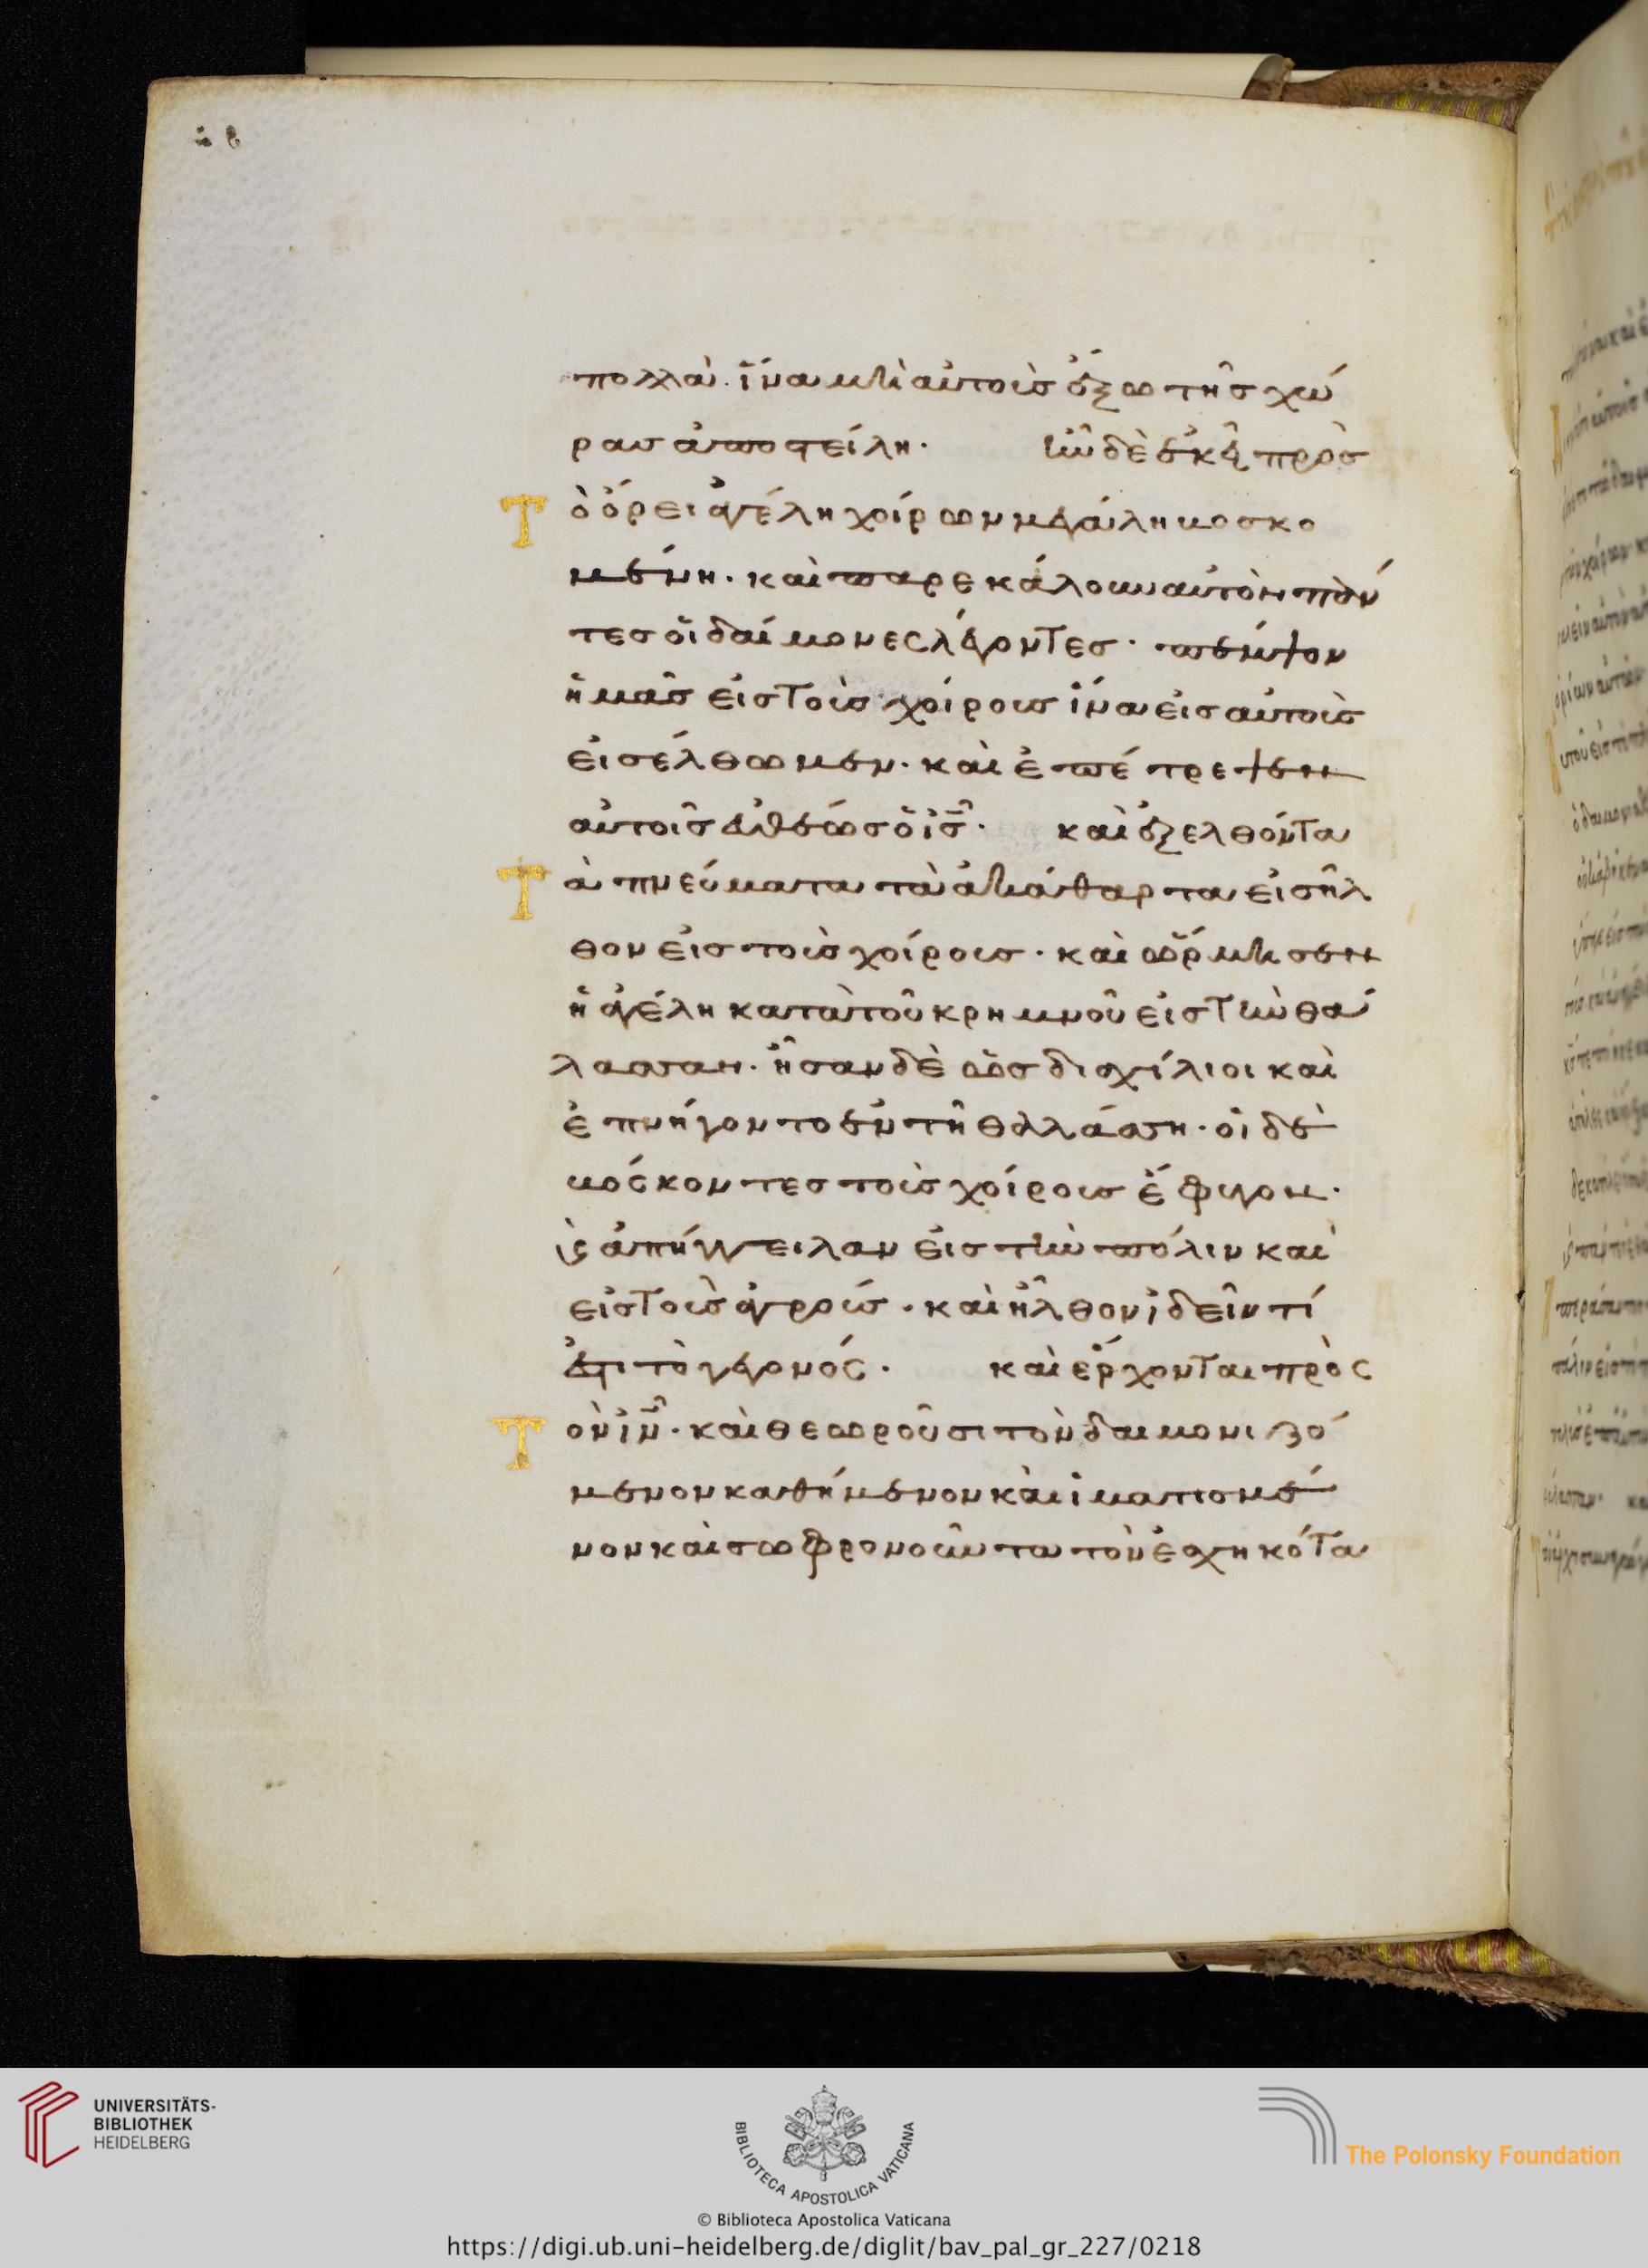 πολλὰ. ἵνα μὴ αὐτοὺς ἔξω τῆς χώ
ρας ἀποστείλη. ἦν δὲ ἐκεῖ πρὸς
Τ ὸ ὄρει ἀγέλη χοίρων μεγάλη βοσκο
μένη. καὶ παρεκάλουν αὐτὸν πάν
τες οἱ δαίμονες λέγοντες. πέμψον
ἡμᾶς εἰς τοὺς χοίρους ἵνα εἰς αὐτοὺς
εἰσέλθωμεν. καὶ ἐπέτρεψεν
αὐτοῖς εὐθέως ὁ ἰς. καὶ ἐξελθόντα
Τ ὰ πνεύματα τὰ ἀκάθαρτα εἰσῆλ
θον εἰς τοὺς χοίρους. καὶ ὥρμησεν
ἡ ἀγέλη κατὰ τοῦ κρημνοῦ εἰς τὴν θά
λασσαν. ἦσαν δὲ ὡς δισχίλιοι καὶ
ἐπνήγοντο ἐν τῆ θαλλάσση. οἱ δὲ
βόσκοντες τοὺς χοίρους ἔφυγον.
ϗ ἀπήγγειλαν εἰς τὴν πόλιν καὶ
εἰς τοὺς ἀγρούς. καὶ ἦλθον ἰδεῖν τί
ἐστι τὸ γεγονός. καὶ ἔρχονται πρὸς
Τ ὸν ἰν. καὶ θεωροῦσι τὸν δαιμονιζό
μενον καθήμενον καὶ ἱματισμέ
νον καὶ σωφρονοῦντα τὸν ἐσχηκότα
UNIVERSITÄTS-
BIBLIOTHEK
HEIDELBERG
BIBLIOTECA APOSTOLICA VATICANA
The Polonsky Foundation
© Biblioteca Apostolica Vaticana
https://digi.ub.uni-heidelberg.de/diglit/bav_pal_gr_227/0218